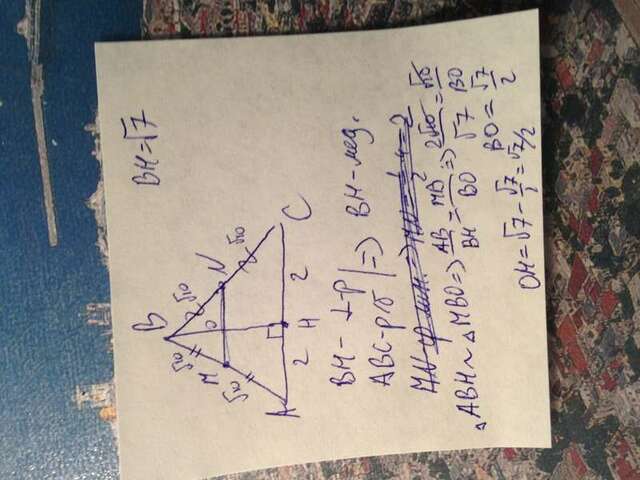 BH=√7
B
√10
√10
M
O
N
√10
√10
A
2
H
2
C
BH - ⊥-р
ABC-р/б
=> BH-мед.
MN ср. лин. => MN = 1/2 · 4 = 2
△ABH ~ △MBO => AB/BH = MB/BO => 2√10/√7 = √10/BO
BO = √7/2
OH = √7 - √7/2 = √7/2